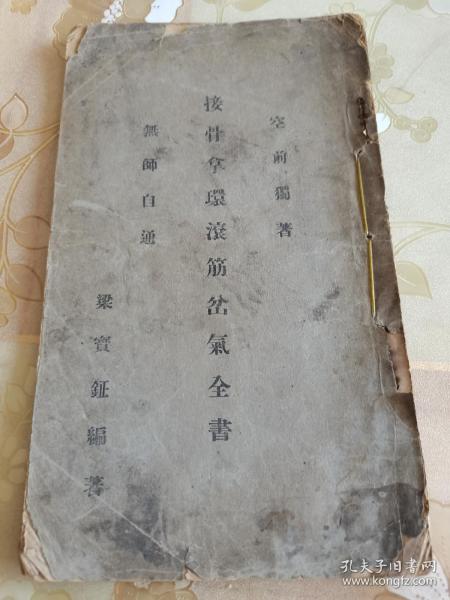 空前獨著
接骨拿環滚筋岔氣全書
無師自通
梁寳鉦編著
孔夫子旧书网
www.kongfz.com